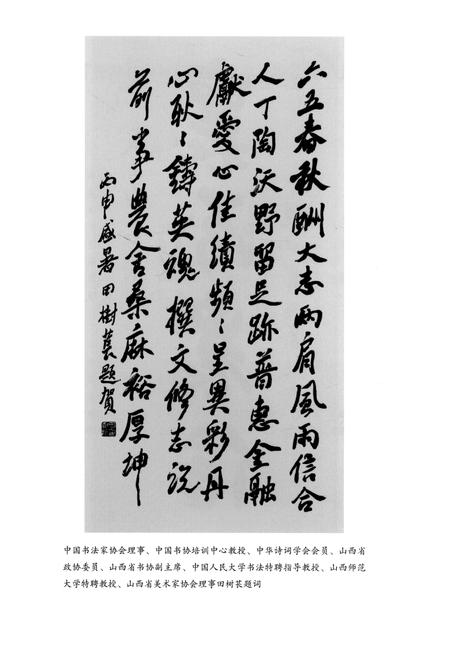 六五春秋酬大志两肩風雨信合
人丁陶沃野留足跡普惠金融
獻愛心佳績頻〻呈異彩丹
心耿〻鑄英魂撰文修志説
前事農舍桑麻裕厚坤
丙申盛暑田樹萇題賀
中国书法家协会理事、中国书协培训中心教授、中华诗词学会会员、山西省
政协委员、山西省书协副主席、中国人民大学书法特聘指导教授、山西师范
大学特聘教授、山西省美术家协会理事田树苌题词